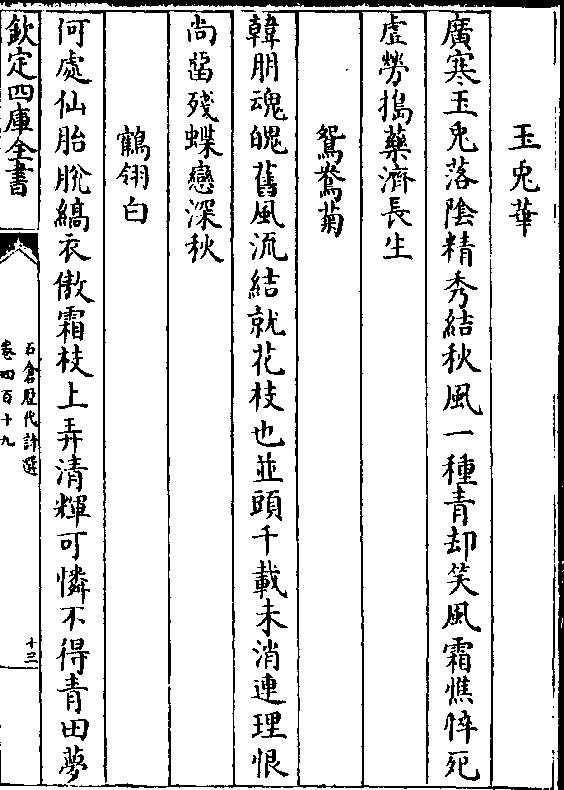 玉兎華
廣寒玉兎落陰精秀結秋風一種青却笑風霜憔悴死
虚勞搗藥濟長生
鴛鴦菊
韓朋魂魄舊風流結就花枝也並頭千載未消連理恨
尚留殘蝶戀深秋
鶴翎白
何處仙胎脫縞衣傲霜枝上弄清輝可憐不得青田夢
欽定四庫全書
石倉歴代詩選
卷四百十九
十三